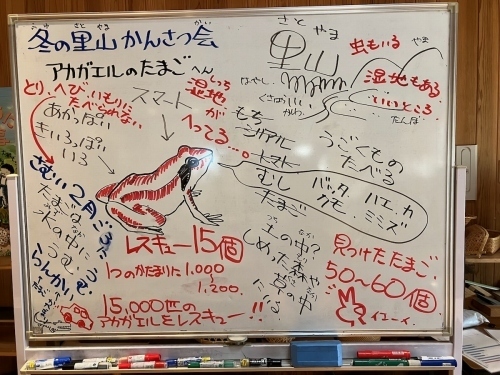 ふゆ さと やま かい
冬の里山かんさつ会
アカガエルのたまごへん
とり、へび、いもりに
たべられない
あかっぽい
きいろっぽい
いろ
スマート
しっち
湿地が
へってる…。
さむい2月に
たまごを
水の中に
うむ。
らんかい
さと やま
里山
はやし
くさはら
かわ
たんぼ
虫もいる
やま
湿地もある
いいところ
もち
シリアル
トマト
むし
たまご
うごくもの
たべる
バッタ ハエ、カ
クモ、ミミズ
つち なか
土の中?
しめった森や
草の中
レスキュー15個
1つのかたまりに1,000
1,200
15,000匹の
アカガエルをレスキュー!!
見つけたたまご
50〜60個
イエーイ